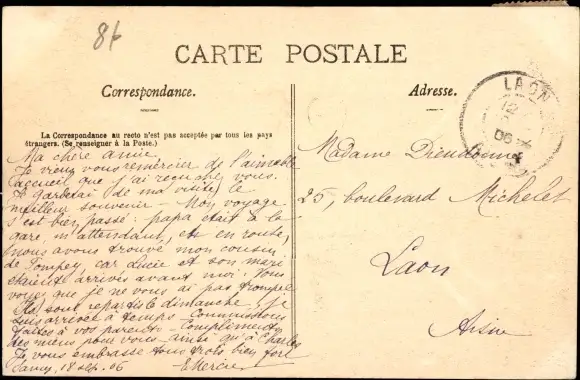 86
CARTE POSTALE
Correspondance.
La Correspondance au recto n'est pas acceptée par tous les pays
étrangers. (Se renseigner à la Poste.)
Ma chère amie
Je viens vous remercier de l'aimable
accueil que j'ai reçu chez vous.
Je garderai de ma visite le
meilleur souvenir - Mon voyage
s'est bien passé : papa était à la
gare, m'attendant, et en route,
nous avons trouvé mon cousin
de Pompey, car Lucie et son mari
étaient arrivés avant moi. Vous
voyez que je ne vous ai pas trompée
Ils sont repartis le dimanche. Je
suis arrivée à temps - Commissions
faites à vos parents - Compliments
des miens pour vous - ainsi qu'à Charles
Je vous embrasse tous trois bien fort
18 sep. 06
Adresse.
LAON
12
06
Madame Dieudonné
25, boulevard Michelet
Laon
Aisne